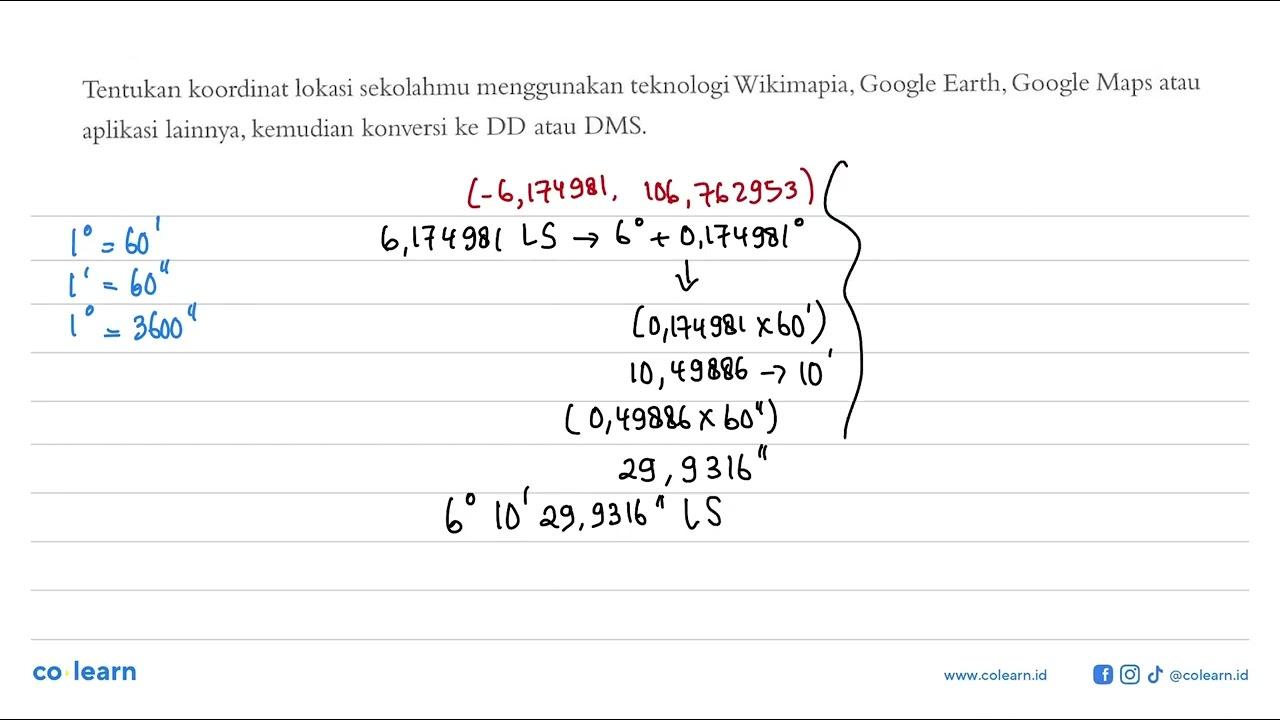 Tentukan koordinat lokasi sekolahmu menggunakan teknologi Wikimapia, Google Earth, Google Maps atau
aplikasi lainnya, kemudian konversi ke DD atau DMS.
(-6,174981, 106,762953)
1° = 60'
1' = 60"
1° = 3600"
6,174981 LS → 6° + 0,174981°
↓
(0,174981 x 60')
10,49886 → 10'
(0,49886 x 60")
29,9316"
6° 10' 29,9316" LS
co learn
www.colearn.id
@colearn.id